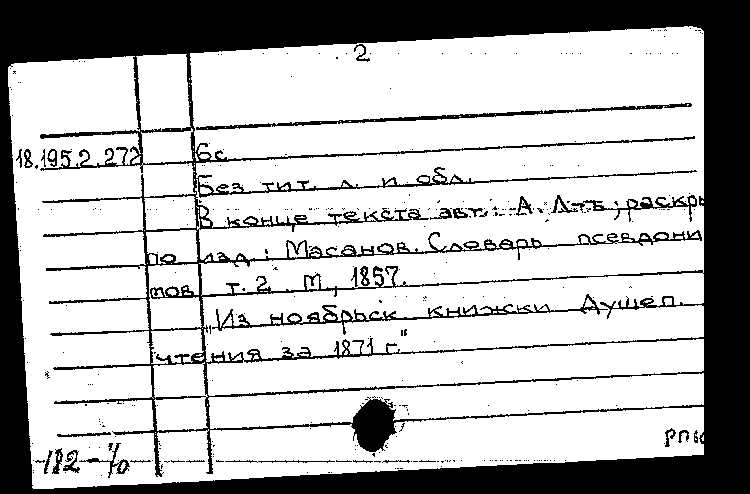 2
18.195.2.272 6с
Без тит. л. и обл.
В конце текста авт.: А. Л-тъ; раскры
по изд.: Масанов. Словарь псевдони
мов т. 2. М., 1857.
"Из ноябрьск книжки Душеп.
чтения за 1871 г."
182-